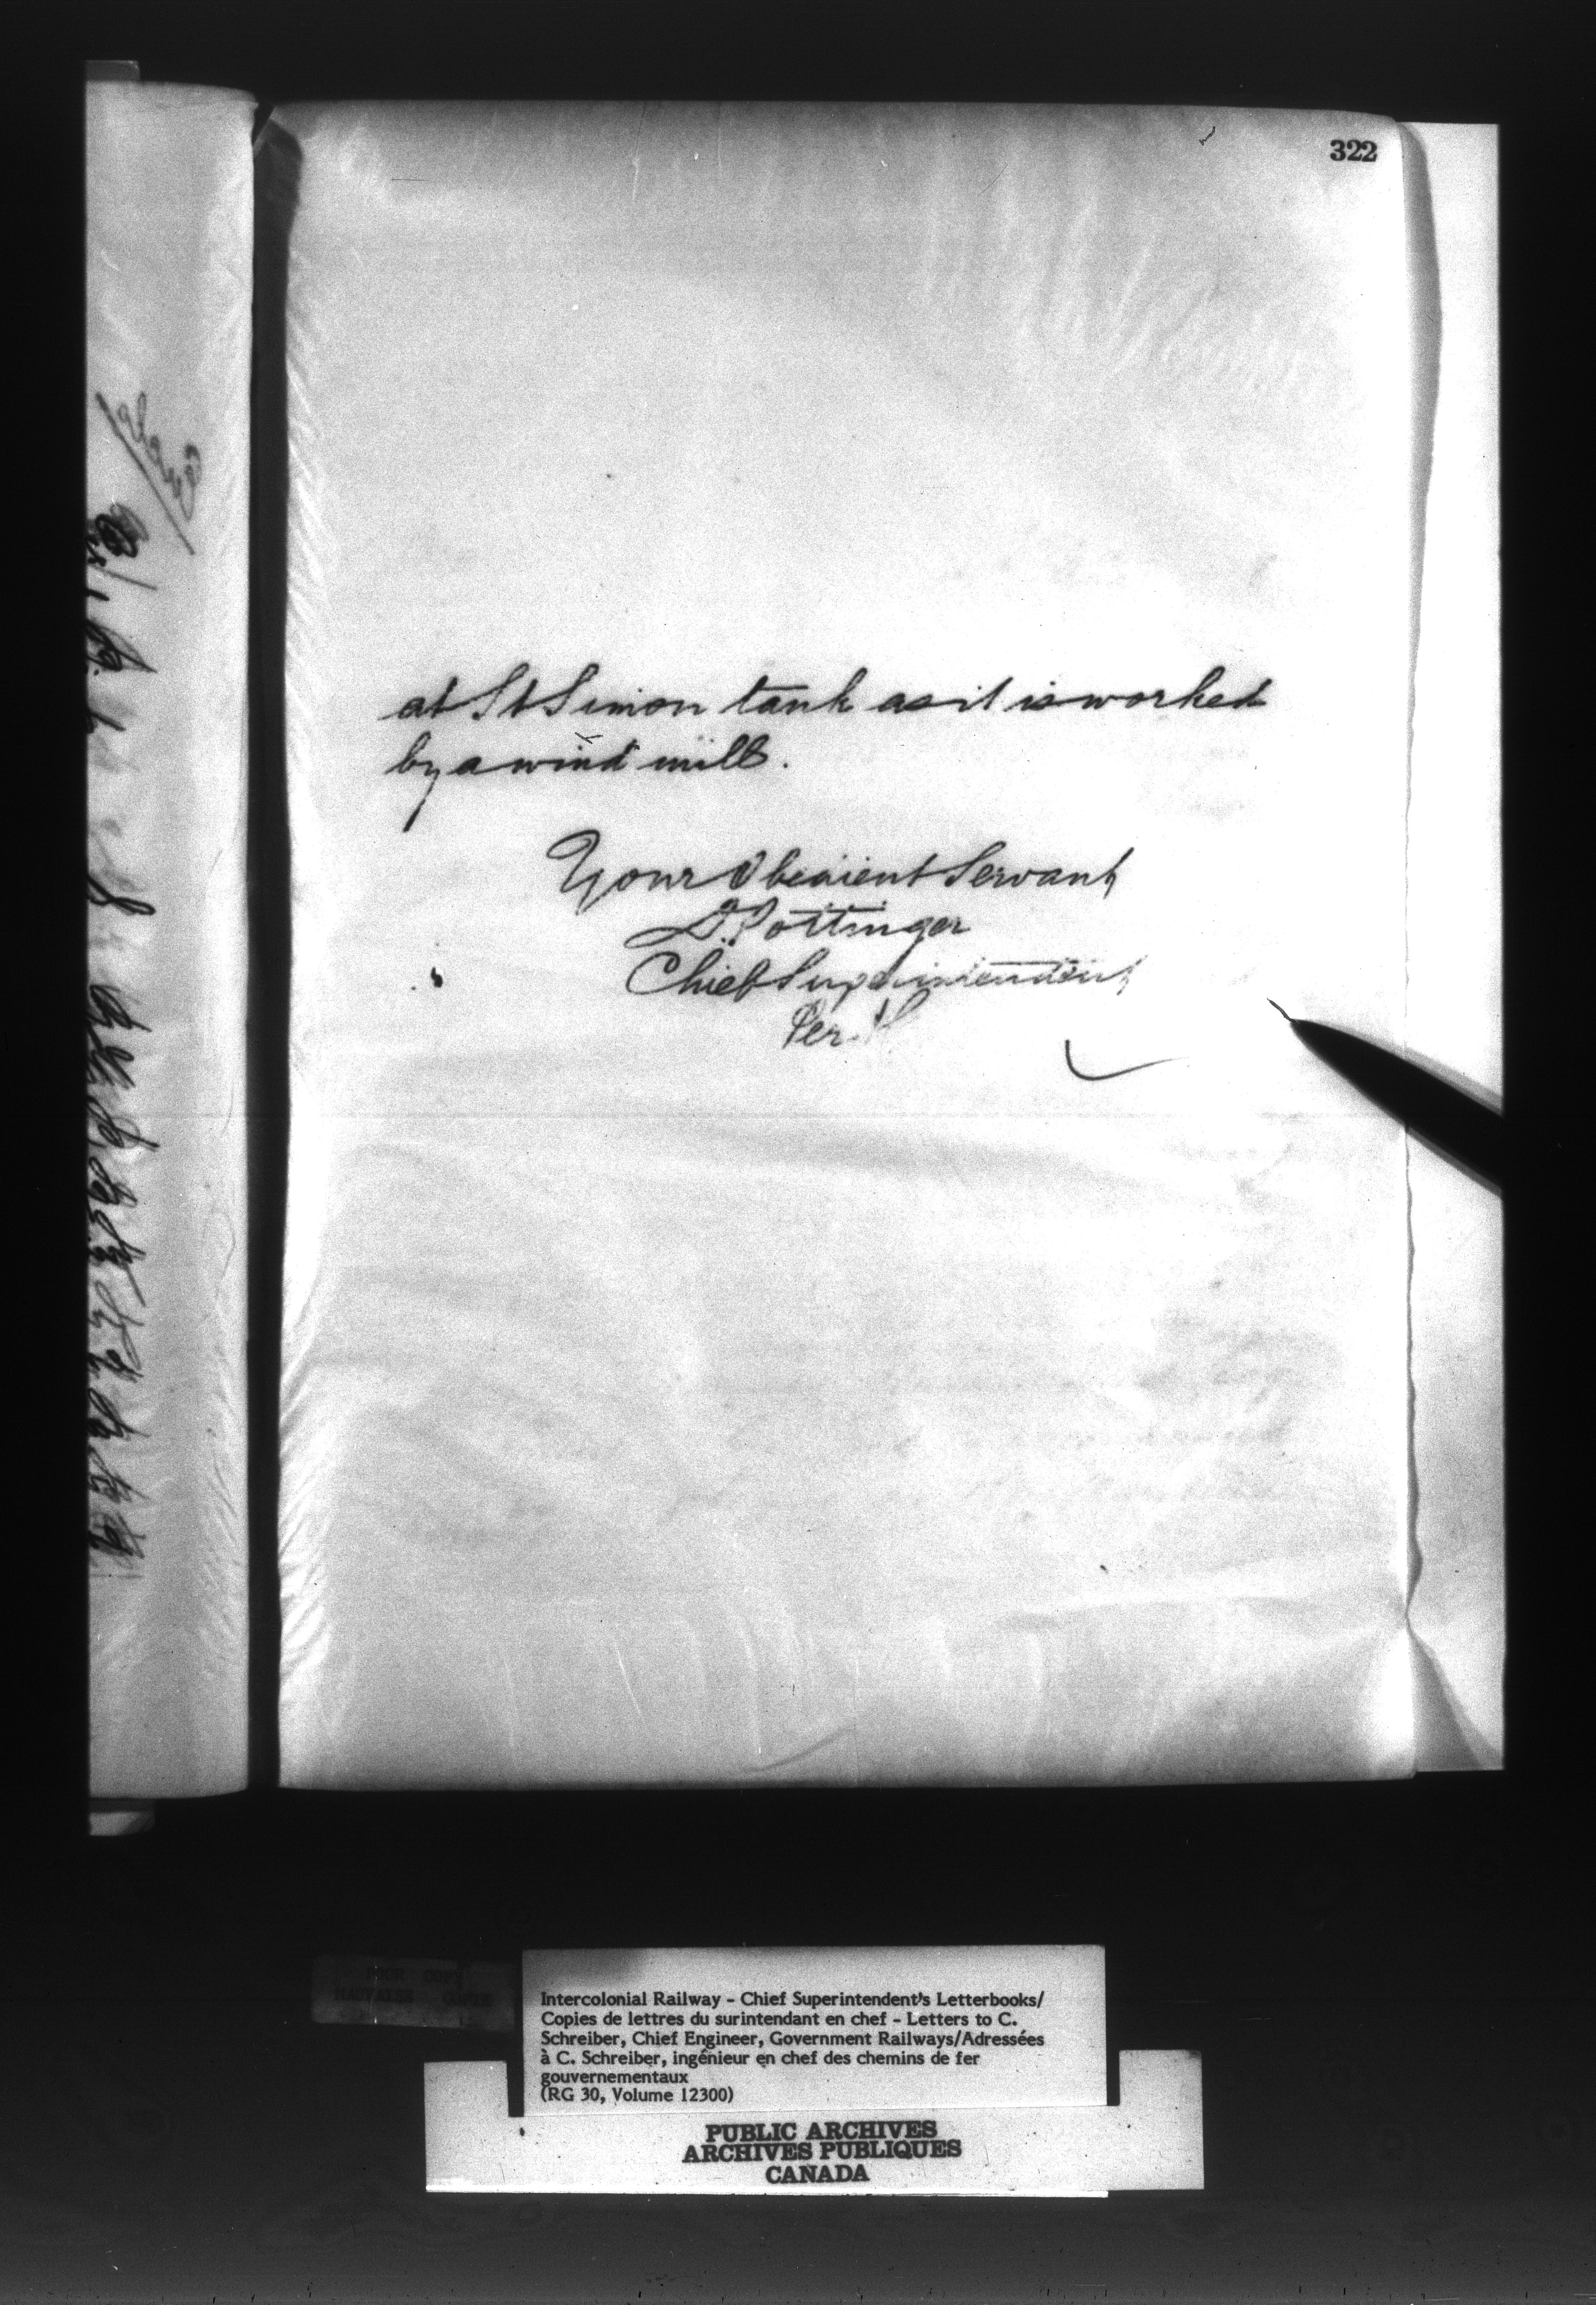 322
at St Simon tank as it is worked
by a wind mill.
Your Obedient Servant
D. Pottinger
Chief Superintendent
Per.
POOR COPY
MAUVAISE COPIE
Intercolonial Railway - Chief Superintendent's Letterbooks/
Copies de lettres du surintendant en chef - Letters to C.
Schreiber, Chief Engineer, Government Railways/Adressées
à C. Schreiber, ingénieur en chef des chemins de fer
gouvernementaux
(RG 30, Volume 12300)
PUBLIC ARCHIVES
ARCHIVES PUBLIQUES
CANADA